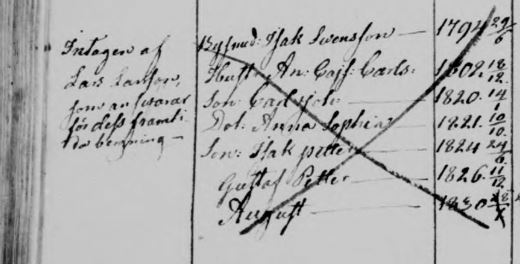 Intagen af
Lars Larson,
som answarar
för dess framti-
da berning
Bysmed: Isak Swensson — 1794 29/6
Hust: An: Cajs: Carls: 1802. 18/12.
Son: Carl Joh: — 1820. 14/1
Dot: Anna Sophia — 1821. 10/10.
Son: Isak petter — 1824 24/6.
Gustaf Petter — 1826. 11/12
August — 1830